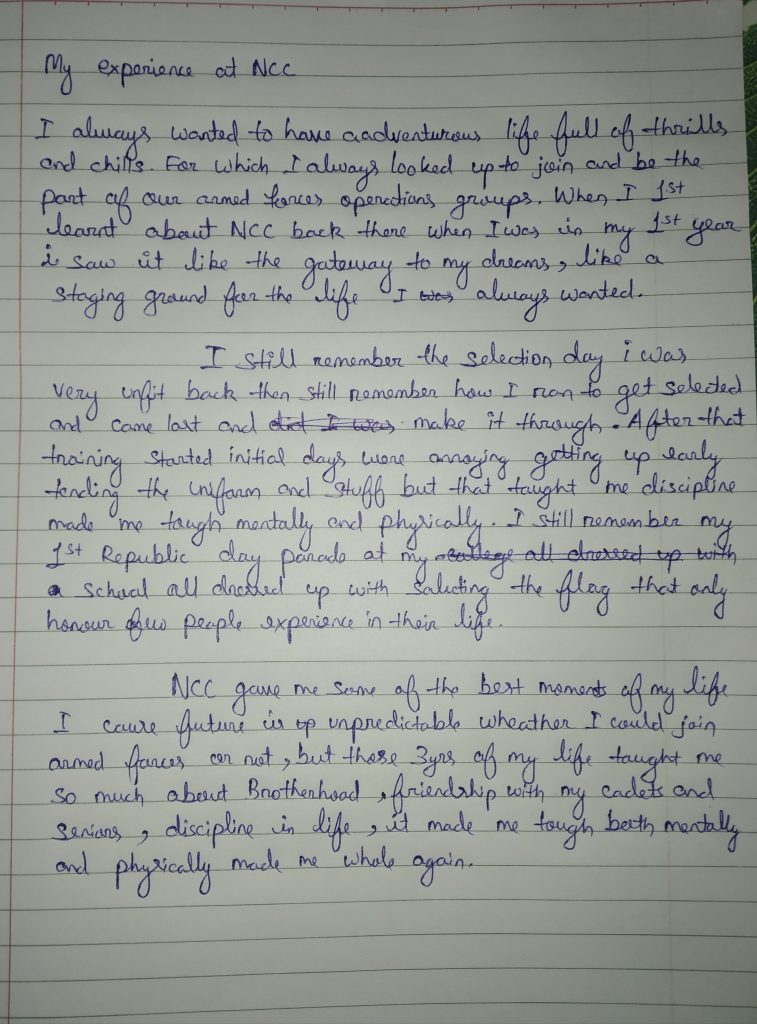 My experience at NCC
I always wanted to have aadventurous life full of thrills
and chills. For which I always looked up to join and be the
part of our armed forces operations groups. When I 1st
learnt about NCC back there when I was in my 1st year
i saw it like the gateway to my dreams, like a
staging ground for the life I was always wanted.
I still remember the selection day i was
very unfit back then still remember how I ran to get selected
and came last and did I was make it through. After that
training started initial days were annoying getting up early
tending the uniform and stuff but that taught me discipline
made me tough mentally and physically. I still remember my
1st Republic day parade at my college all dressed up with
a school all dressed up with saluting the flag that only
honour few people experience in their life.
NCC gave me some of the best moments of my life
I cause future is up unpredictable wheather I could join
armed forces or not, but those 3yrs of my life taught me
so much about Brotherhood, friendship with my cadets and
seniors, discipline in life, it made me tough both mentally
and physically made me whole again.